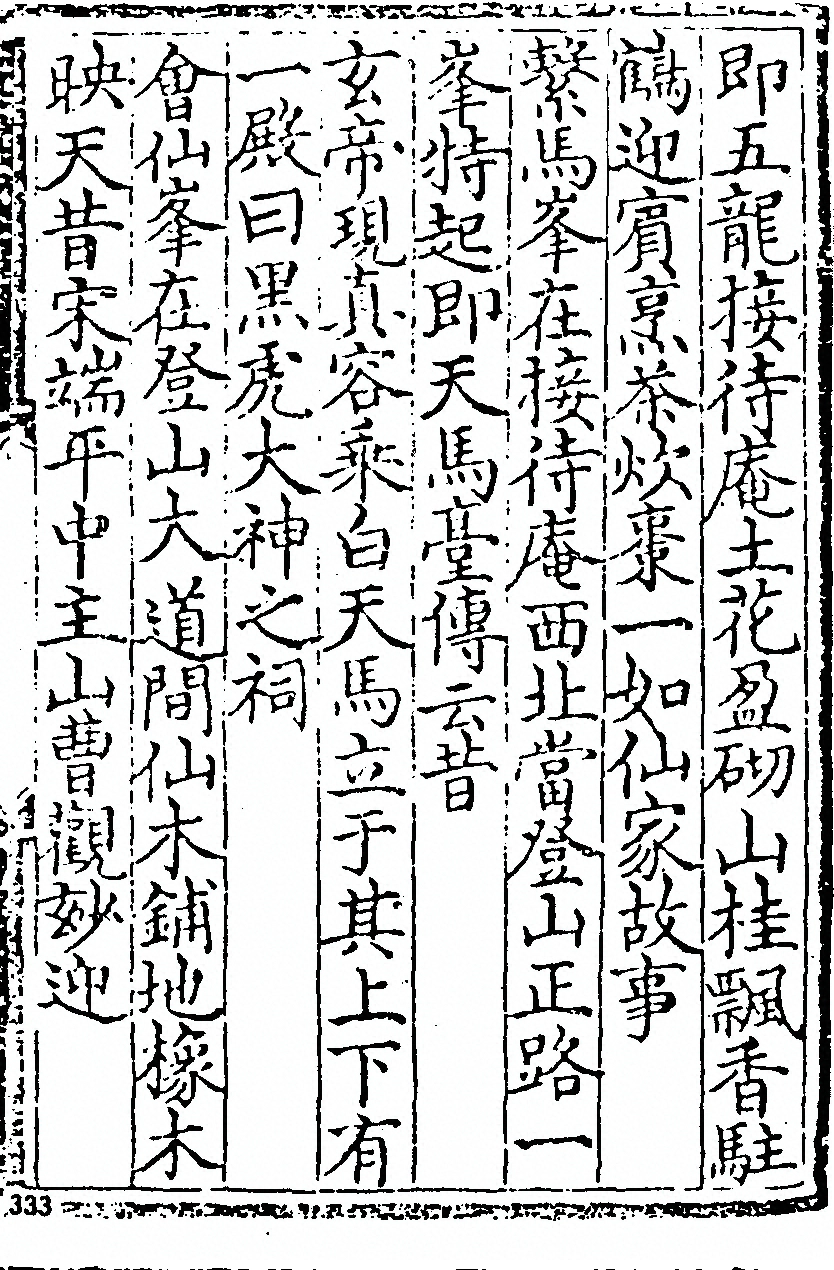 即五龍接待庵土花盈砌山桂飄香駐
鶴迎賓烹茶炊棗一如仙家故事
繫馬峯在接待庵西北當登山正路一
峯特起即天馬臺傳云昔
玄帝現真容乘白天馬立于其上下有
一殿曰黑虎大神之祠
會仙峯在登山大道間仙木鋪地椽木
映天昔宋端平中主山曹觀妙迎
333